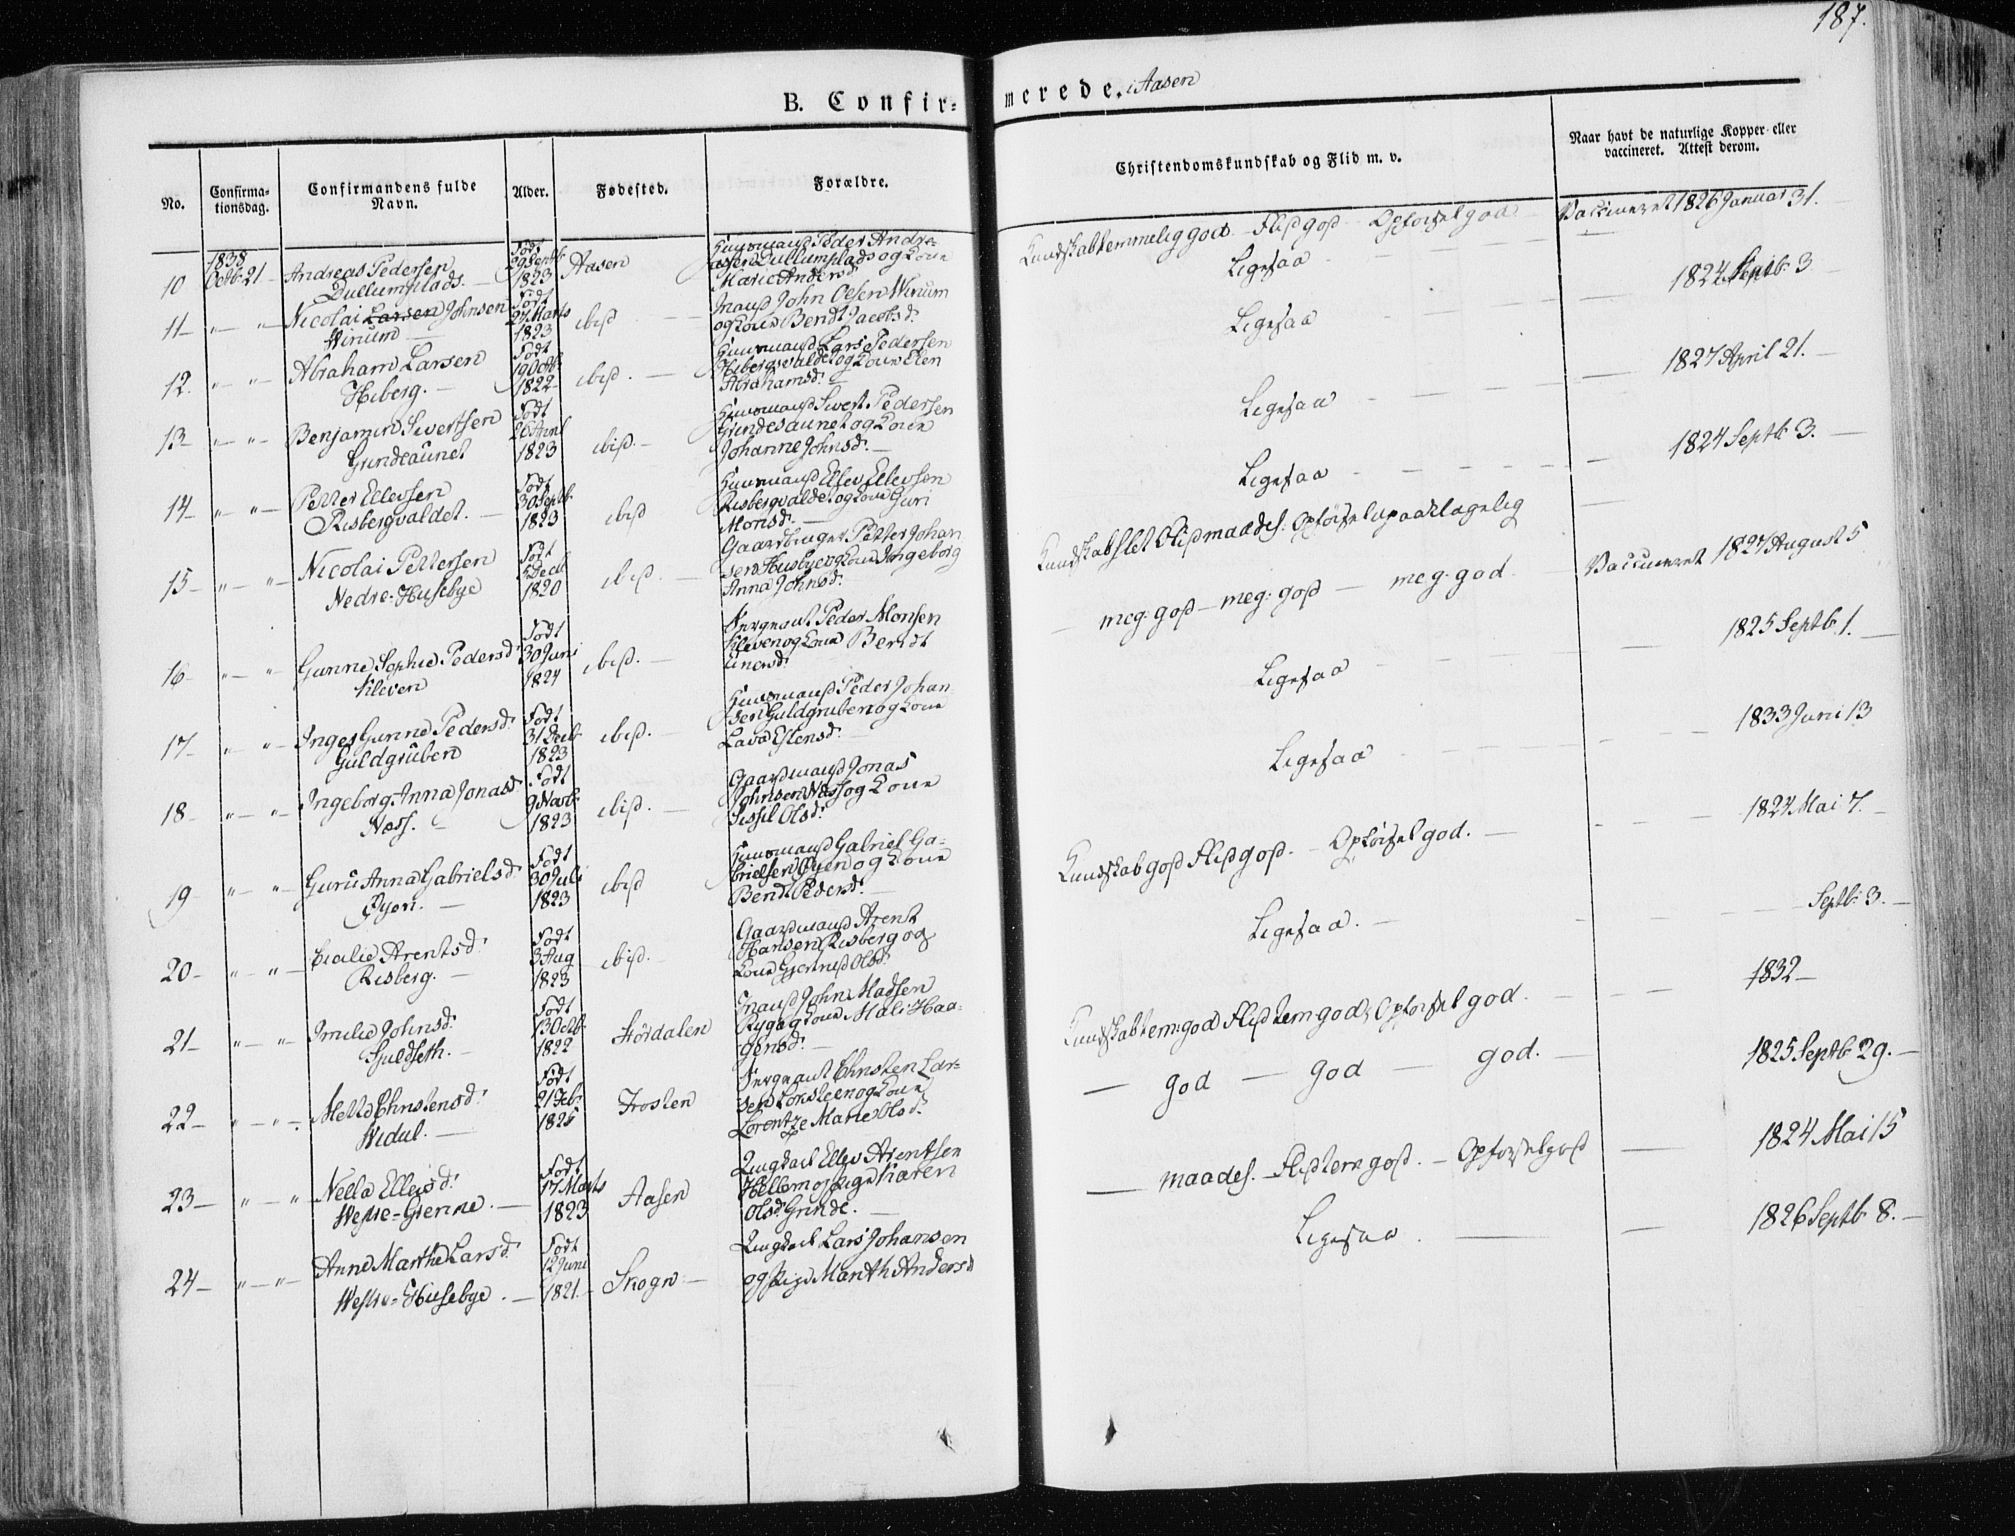 187.
B. Confir-
merede. i Aasen
No.
Confirma-
tionsdag.
Confirmandens fulde
Navn.
Alder.
Fødested.
Forældre.
Christendomskundskab og Flid m. v.
Naar havt de naturlige Kopper eller
vaccineret. Attest derom.
10
1838
Octbr 21
Andreas Pedersen
Dullumplads.
Født
29 Septb
1823
Aasen
Huusmand Peder Andre-
asen Dullumplads og Kone
Marie Andersd.
Kundskab temmelig god - Flid god - Opførsel god
Vaccineret 1826 Januar 31.
11 " "
Nicolai Larsen Johnsen
Winum
Født
27 Marts
1823
ibid
Inand John Olsen Winum
og Kone Bendt Jacobsd.
Ligesaa
1824 Septb. 3
12. " "
Abraham Larsen
Hiberg.
Født
19 Octb.
1822
ibid.
Huusmand Lars Pedersen
Hibergsvaldet og Kone Elen
Abrahamsd.
Ligesaa
1827 April 21.
13 " "
Benjamin Sivertsen
Grindeaunet
Født
26 April
1823
ibid.
Huusmand Sivert Pedersen
Grindesaunet og Kone
Johanne Johnsd.
Ligesaa
1824 Septb. 3.
14 " "
Petter Ellevsen
Risbergvaldet.
Født
30 Septb.
1823
ibid
Huusmand Ellev Ellevsen
Risbergvaldet og Kone Guri
Monsd.
Ligesaa
15 " "
Nicolai Pettersen
Nedre-Husebye
Født
5 Decb
1820
ibid.
Gaardbruger Petter Johan
sen Husbye og Kone Ingeborg
Anna Johnsd.
Kundskab slet Flid maades. Opførsel upaaklagelig
Vaccineret 1827 August 5
16 " "
Gunne Sophie Pedersd.
Kleven
Født
30 Juni
1824
ibid.
Sergeant Peder Monsen
Kleven og Kone Berndt
meg: god - meg: god - meg: god
1825 Septb. 1.
17 " "
Inger Gunne Pedersd.
Guldgruben
Født
31 Decb.
1823
ibid.
Huusmand Peder Johan
sen Guldgruben og Kone
Lava Estensd.
Ligesaa
1833 Juni 13
18 " "
Ingeborg Anna Jonasd.
Næss.
Født
9 Novb.
1823
ibid.
Gaardmand Jonas
Johnsen Næss og Kone
Sissil Olsd.
Ligesaa
1824 Mai 7.
19 " "
Guru Anna Gabrielsd.
Øyen.
Født
30 Juli
1823
ibid
Huusmand Gabriel Ga-
brielsen Øyen og Kone
Berit Pedersd.
Kundskab god Flid god. - Opførsel god.
Septb. 3.
20 " "
Arentsd.
Risberg.
Født
3 Aug
1823
ibid.
Gaardmand Arent
Hansen Risberg og
Kone Gjertrud Olsd.
Ligesaa.
1832
21 " "
Emilie Johnsd.
Guldseth.
Født
13 Octb.
1822
Størdalen
Inand John Madsen
Ryg og Kone Mali Haa-
gensd.
Kundskab tem: god Flid tem god, Opførsel god.
1825 Septb. 29.
22 " "
Mette Christensd.
Widal.
Født
21 Feb.
1825
Frosten
Sergeant Christen Lar-
sen og Kone
Lorentze Marie Olsd.
god - god - god.
1824 Mai 15
23 " "
Nella Ellevsd.
Westre-Grenne.
Født
17 Marts
1823
Aasen
Ungkarl Ellev Arentsen
Hellem og Pige Karen
Olsd. Grinde.
maades. - Flid tem god. - Opførsel god
1826 Septb 8.
24 " "
Anne Marthe Larsd.
Westre-Husebye.
Født
12 Juni
1821.
Skogn
Ungkarl Lars Johansen
og Pige Marith Andersd
Ligesaa